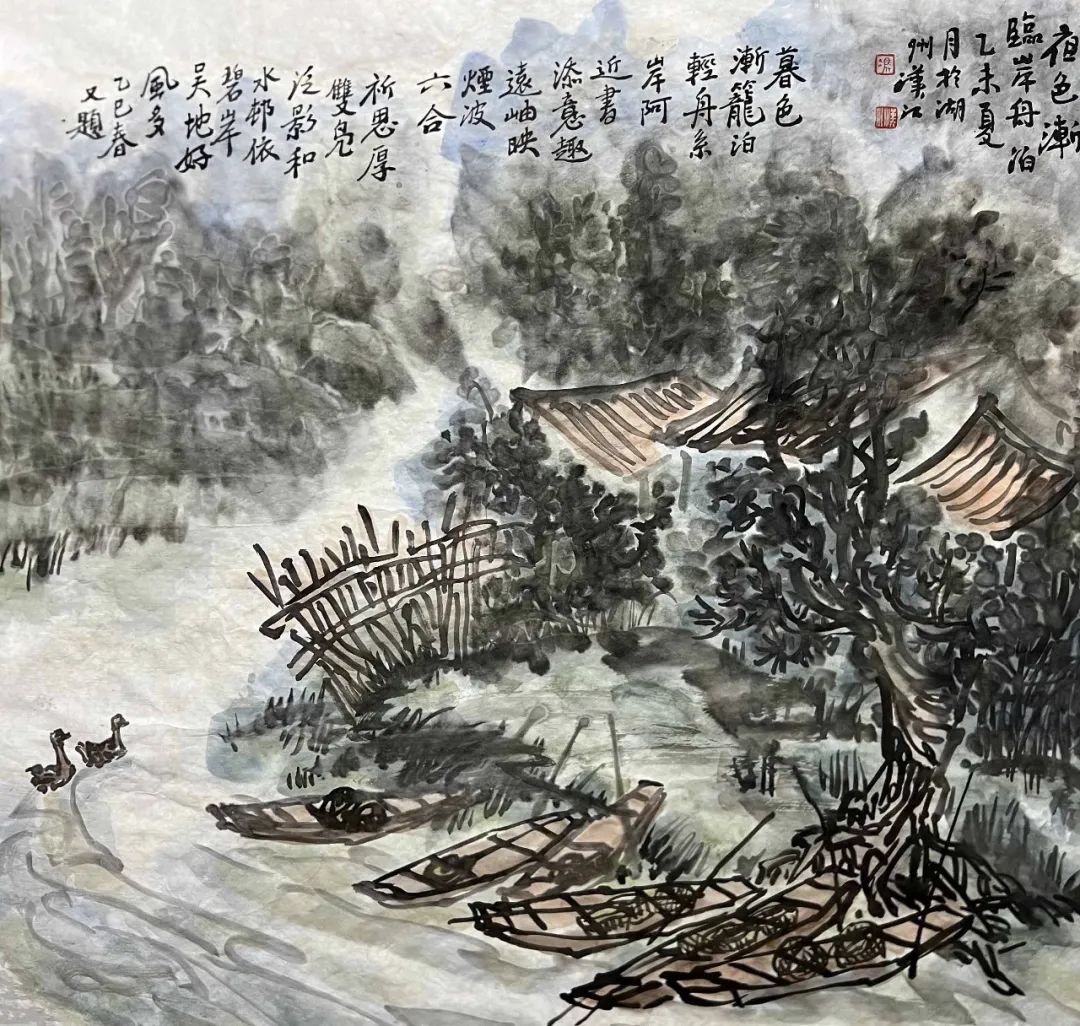 夜色漸
臨岸舟泊
乙未夏
月於湖
州漢江
暮色
漸籠泊
輕舟系
岸阿
近書
添意趣
遠岫映
煙波
六合
祈思厚
雙鳧
泛影和
水邨依
碧岸
吳地好
風多
乙巳春
又題